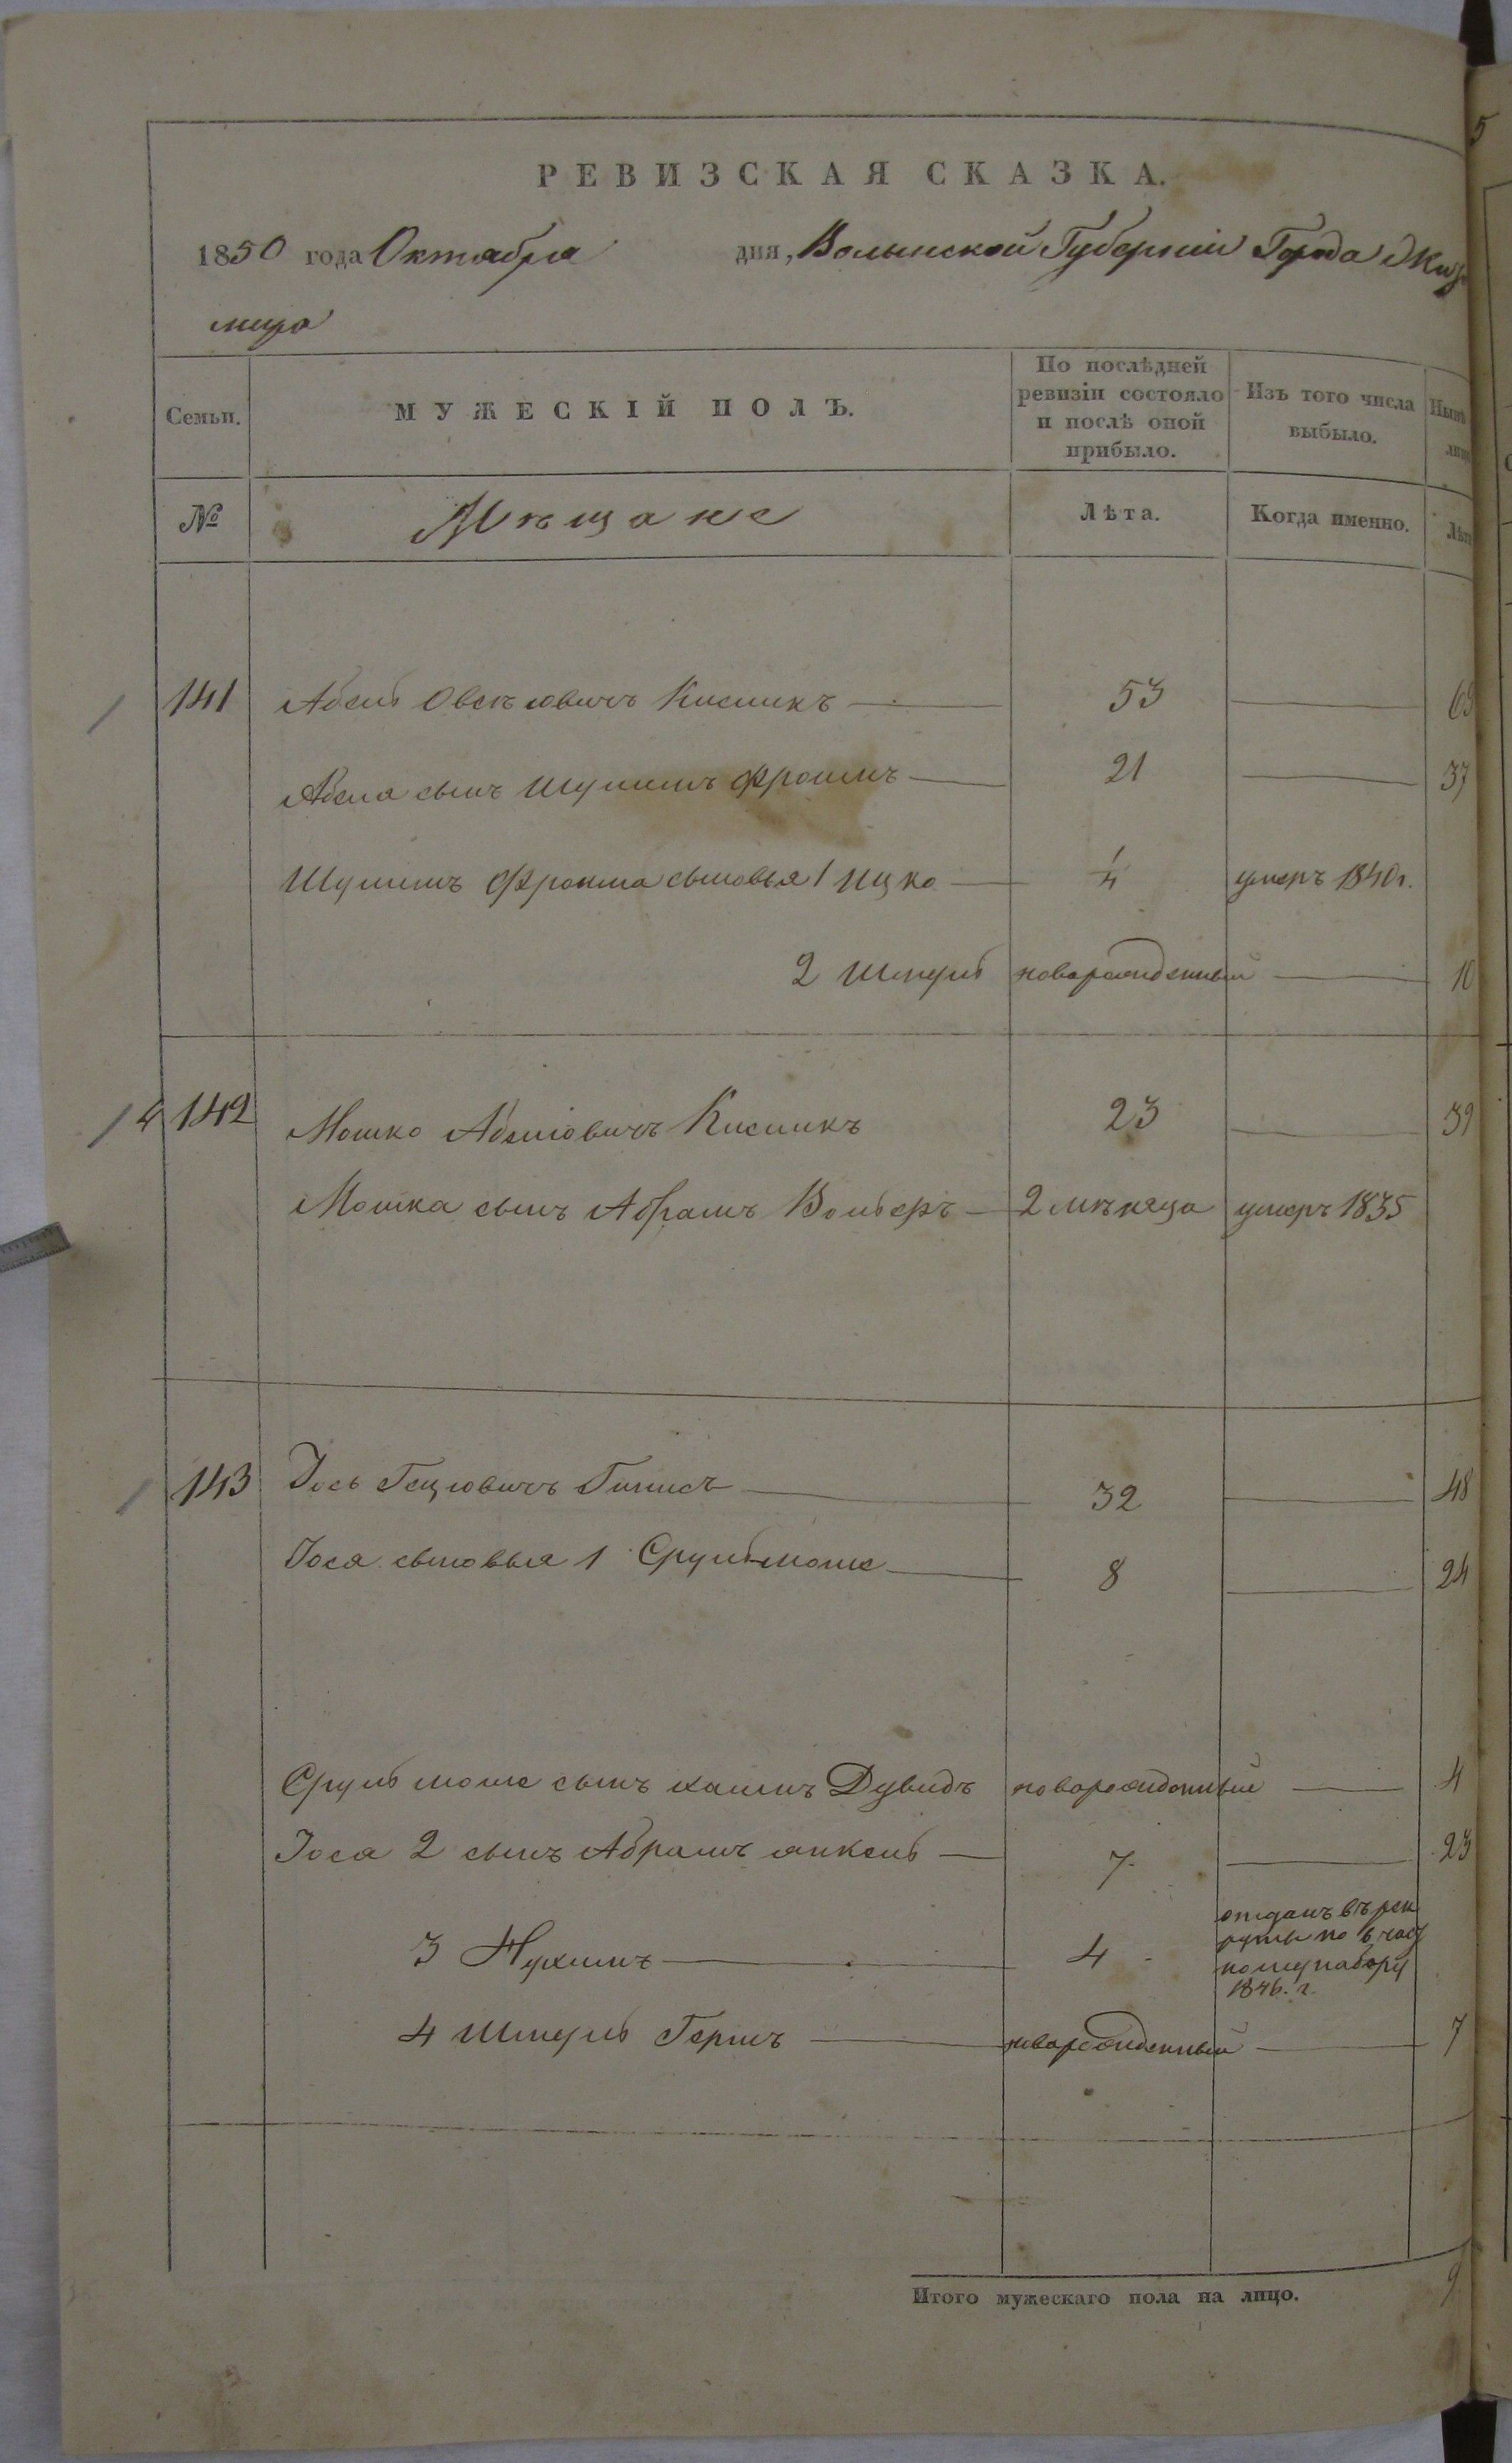 РЕВИЗСКАЯ СКАЗКА.
1850 года Октября дня, Волынской Губернии Города Жито
мира
Семьи. МУЖЕСКІЙ ПОЛЪ. По послѣдней ревизіи состояло и послѣ оной прибыло. Изъ того числа выбыло. Нынѣ
№ Мѣщане Лѣта. Когда именно. Лѣта
141 Абель Овсѣевичъ Кисликъ 53
Абеля сынъ Шулимъ Фроимъ 21 37
Шулимъ Фроима сыновья 1 Ицко 1/4 умеръ 1840 г.
2 Шмуль новорожденный 10
142 Мошко Абелiовичъ Кисликъ 23 39
Мошка сынъ Абрамъ Вольеръ 2 мѣсяца умеръ 1835
143 Іось Гецiовичъ 32 48
Іося сыновья 1 Срульмоше 8 24
Сруль моше сынъ хаимъ Дувидъ новорожденный 4
Іося 2 сынъ Абрамъ янкель 7 23
3 Нухимъ 4 отданъ въ рек
руты по 6 част
ному набору
1846. г.
4 Шмуль Гершъ новорожденный 7
Итого мужескаго пола на лицо. 9